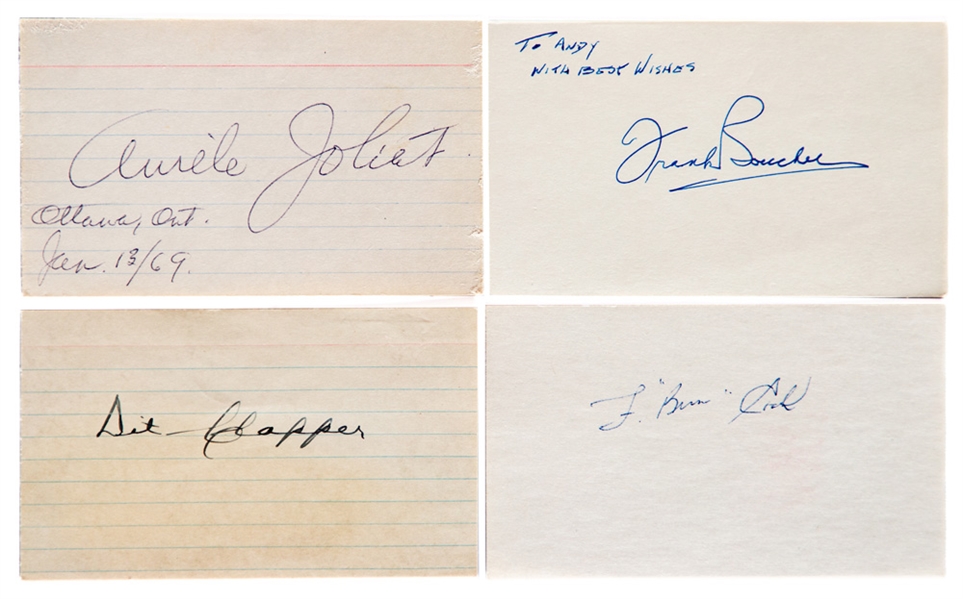 Aurèle Joliat
Ottawa, Ont.
Jan. 13/69.
To Andy
With Best Wishes
Frank Boucher
Dit Clapper
F. "Bun" Cook